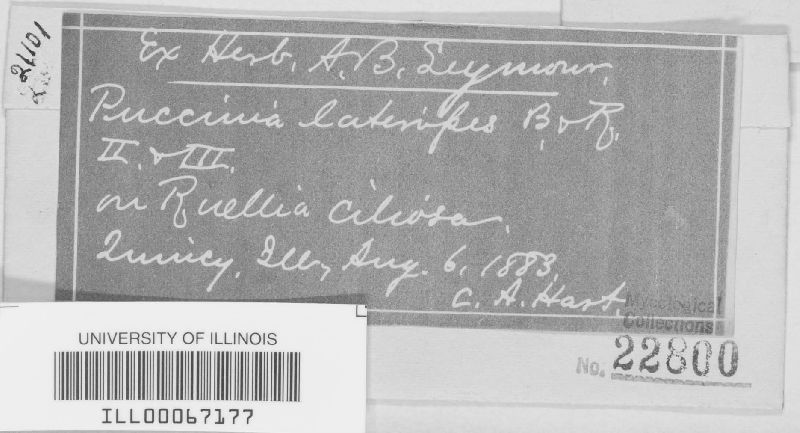 21101
Ex Herb. A. B. Seymour.
Puccinia lateripes B. & R.
II. & III.
on Ruellia ciliosa.
Quincy, Ill., Aug. 6, 1883.
C. A. Hart.
Mycological
Collections
No. 22800
UNIVERSITY OF ILLINOIS
ILL00067177